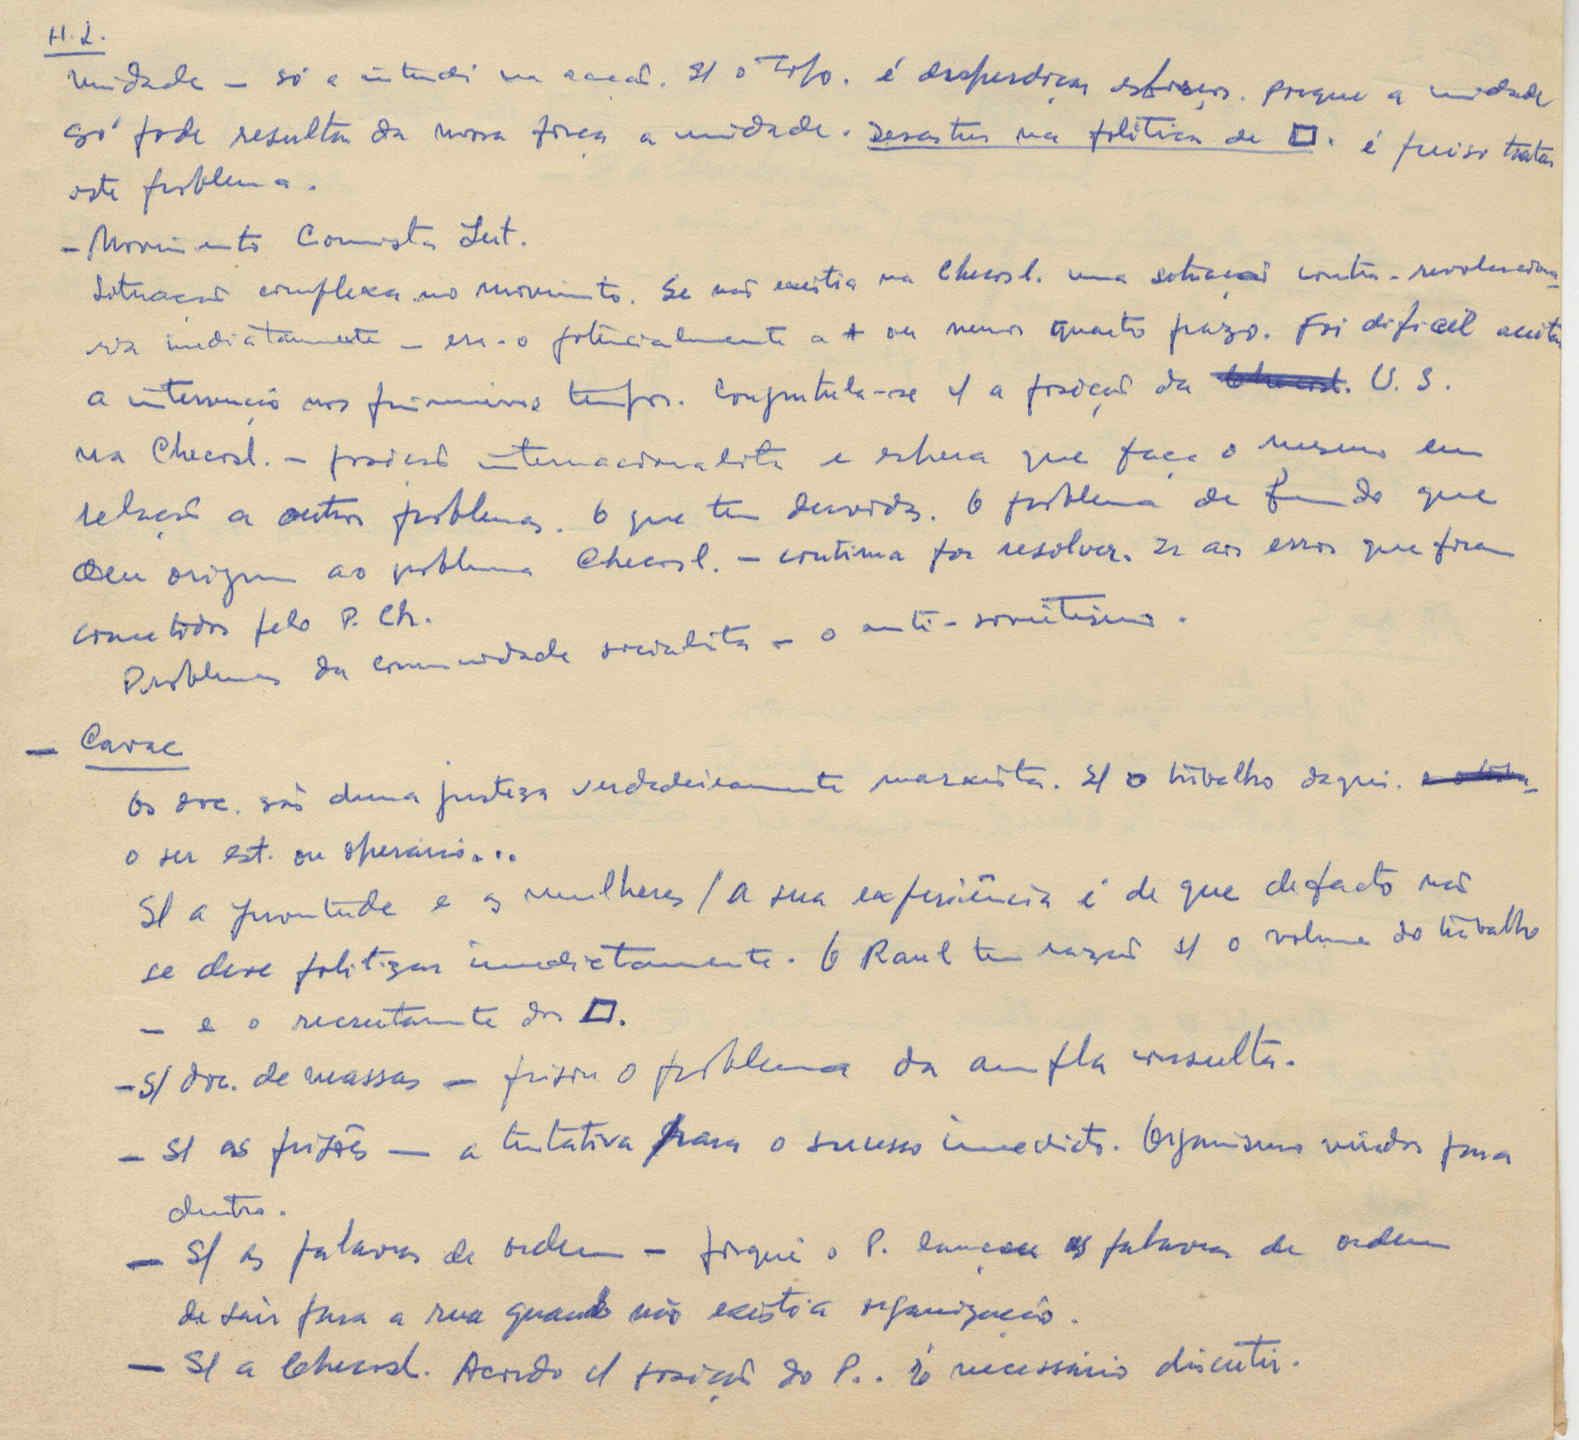 H. L.
unidade – só a entendi na acção. S/ o é desperdiçar esforços. porque a unidade
só pode resultar da nossa força a unidade. Desastres na política de □. é preciso tratar
este problema.
– Movimento Comunista Int.
Situação complexa no movimento. Se não existia na Checosl. uma situação contra-revolucioná-
ria imediatamente – era-o potencialmente a + ou menos prazo. Foi dificil aceitar
a intervenção nos primeiros tempos. Congratula-se c/ a posição da U. S.
na Checosl. – posição internacionalista e espera que faça o mesmo em
relação a outros problemas. O que tem duvidas. O problema de fundo que
deu origem ao problema Checosl. – continua por resolver. aos erros que foram
cometidos pelo P. Ch.
Problemas da comunidade socialista – o anti-sovietismo.
–
Os doc. são duma justeza verdadeiramente marxista. S/ o trabalho daqui.
o ser est. ou operário...
S/ a juventude e as mulheres / A sua experiência é de que de facto não
se deve politizar imediatamente. O Raul tem razão s/ o volume do trabalho
– e o recrutamento dos □.
– S/ doc. de massas – frisou o problema da ampla consulta.
– S/ as prisões – a tentativa para o sucesso imediato. Organismos virados para
dentro.
– S/ as palavras de ordem – porquê o P. lançou as palavras de ordem
de sair para a rua quando não existia organização.
– S/ a Checosl. Acordo c/ posição do P.. É necessário discutir.